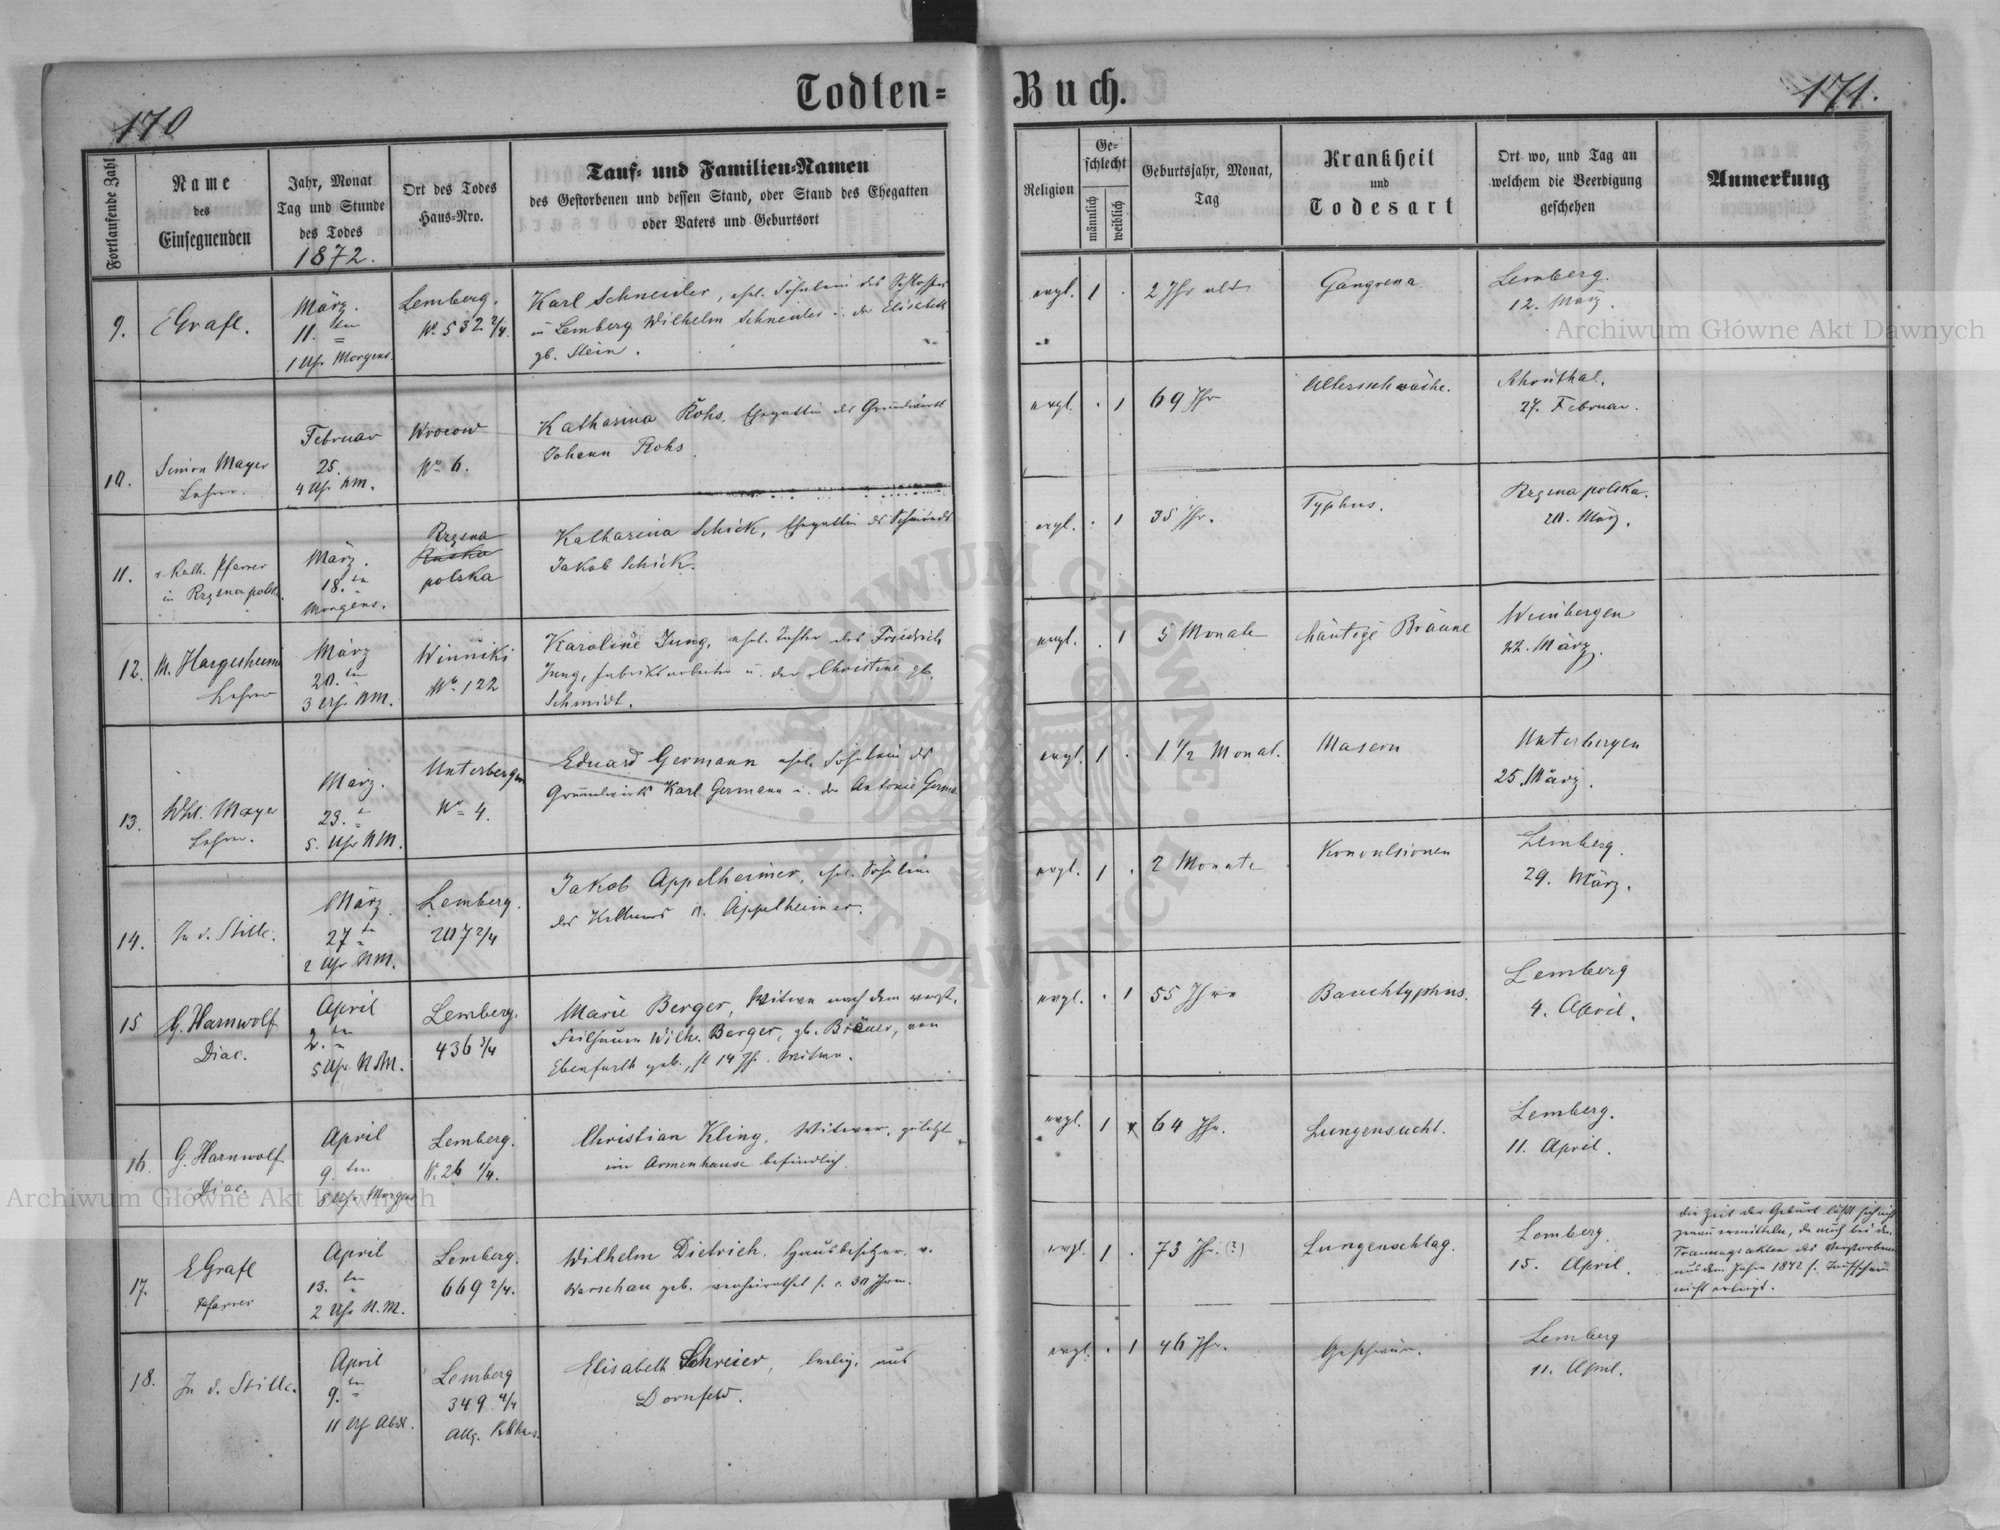 Todten-
Buch.
170
171.
Fortlaufende Zahl
Name
des
Einsegnenden
Jahr, Monat
Tag und Stunde
des Todes
1872.
Ort des Todes
Haus-Nro.
Tauf- und Familien-Namen
des Gestorbenen und dessen Stand, oder Stand des Ehegatten
oder Vaters und Geburtsort
Religion
Ge-
schlecht
männlich
weiblich
Geburtsjahr, Monat,
Tag
Krankheit
und
Todesart
Ort wo, und Tag an
welchem die Beerdigung
geschehen
Anmerkung
9.
EGrafl.
März.
11. ten
1 Uhr Morgens.
Lemberg.
No 532 2/4.
Karl Schneider, ehel. Söhnlein des Schlossers
in Lemberg Wilhelm Schneider u. der Elisabeth
gb. Stein.
evgl. 1 .
2 Jhr alt
Gangrena
Lemberg.
12. März.
10.
Simon Mayer
Lehrer.
Februar
25.
4 Uhr NM.
Wrocow
No 6.
Katharina Rohs, Ehegattin des Grundwirth
Johann Rohs
evgl. . 1
69 Jhr
Altersschwäche.
27. Februar.
11.
r. Kath. Pfarrer
in Rzęsna polska.
März.
18. ten
Morgens.
Rzęsna
polska
Katharina Schick, Ehegattin des Schmieds
Jakob Schick.
evgl. . 1
35 Jhr.
Typhus.
Rzęsna polska.
20. März.
12.
M. Hargesheimer
Lehrer
März
20. ten
3 Uhr NM.
Winniki
No 122
Karoline Jung, ehel. Tochter des Friedrich
Jung, Fabriksarbeiter u. der Christine gb.
Schmidt.
evgl. . 1
5 Monate
häutige Bräune
Weinbergen
22. März.
13.
Mayer
Lehrer.
März.
23.
5. Uhr NM.
Unterbergen
No 4.
Eduard Germann ehel. Söhnlein des
Grundwirth Karl Germann u. der Antonie Germa
evgl. 1 .
1 1/2 Monat.
Masern
Unterbergen
25. März.
14.
In d. Stille.
März.
27 ten
2 Uhr NM.
Lemberg.
207 2/4
Jakob Appelheimer, ehel. Söhnlein
des Kellners A. Appelheimer.
evgl. 1 .
2 Monate
Konvulsionen
Lemberg.
29. März.
15
G. Harnwolf
Diac.
April
2. ten
5 Uhr NM.
Lemberg.
436 3/4
Marie Berger, Witwe nach dem verst.
Wilh. Berger, gb. Bräuer, von
Ebenfurth geb., st. 14 Jhr. Witwe.
evgl. . 1
55 Jhre
Bauchtyphus.
Lemberg
4. April.
16.
G. Harnwolf
Diac.
April
9. ten
8 Uhr Morgens
Lemberg.
N. 26 1/4.
Christian Kling, Witwer, zuletzt
im Armenhause befindlich.
evgl. 1 x
64 Jhr.
Lungensucht.
Lemberg.
11. April.
17.
EGrafl
Pfarrer
April
13. ten
2 Uhr N.M.
Lemberg.
669 2/4.
Wilhelm Dietrich, Hausbesitzer, v.
Warschau geb. verheirathet s. c. 30 Jhren.
evgl. 1 .
73 Jhr. (?)
Lungenschlag.
Lemberg.
15. April.
die Zeit der Geburt läßt sich nicht
genau ermitteln, da auch bei den
Trauungsakten des Verstorbenen
aus dem Jahre 1842 s. Taufschein
nicht erliegt.
18.
In d. Stille.
April
9. ten
11 Uhr Abds.
Lemberg
349 4/4
Allg. Krkhs.
Elisabeth Schreier, ledig, aus
Dornfeld.
evgl. . 1
46 Jhr.
Geschwür.
Lemberg
11. April.
Archiwum Główne Akt Dawnych
Archiwum Główne Akt Dawnych
ARCHIWUM GŁÓWNE AKT DAWNYCH